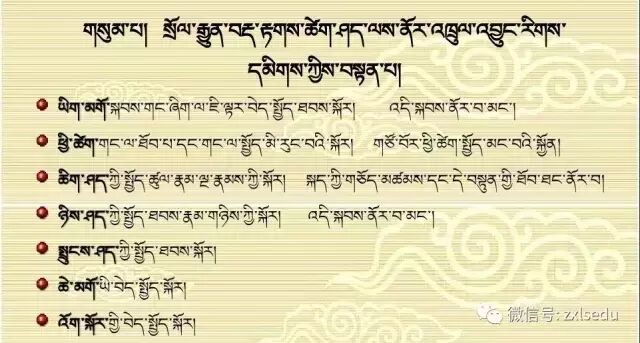 གསུམ་པ། སྲོལ་རྒྱུན་བརྡ་རྟགས་ཚེག་ཤད་ལས་ནོར་འཁྲུལ་འབྱུང་རིགས་
དམིགས་ཀྱིས་བསྟན་པ།
ཡིག་མགོ་སྐབས་གང་ཞིག་ལ་ཇི་ལྟར་བེད་སྤྱོད་ཐབས་སྐོར། འདི་སྐབས་ནོར་བ་མང་།
ཕྱི་ཚེག་གང་ལ་ཐོབ་པ་དང་གང་ལ་སྤྱོད་མི་རུང་བའི་སྐོར། གཙོ་བོར་ཕྱི་ཚེག་སྤྱོད་མང་བའི་སྐྱོན།
ཆིག་ཤད་ཀྱི་སྤྱོད་ཚུལ་རྣམ་ལྔ་རྣམས་ཀྱི་སྐོར། སྐད་ཀྱི་གཅོད་མཚམས་དང་དེ་བསྟུན་གྱི་ཐོབ་ཐང་ནོར་བ།
ཉིས་ཤད་ཀྱི་སྤྱོད་ཐབས་རྣམ་གཉིས་ཀྱི་སྐོར། འདི་སྐབས་ནོར་བ་མང་།
སྦྲུངས་ཤད་ཀྱི་སྤྱོད་ཐབས་སྐོར།
ཆེ་མགོ་ཡི་བེད་སྤྱོད་སྐོར།
འོག་སྐོར་གྱི་བེད་སྤྱོད་སྐོར།
微信号: zxlsedu